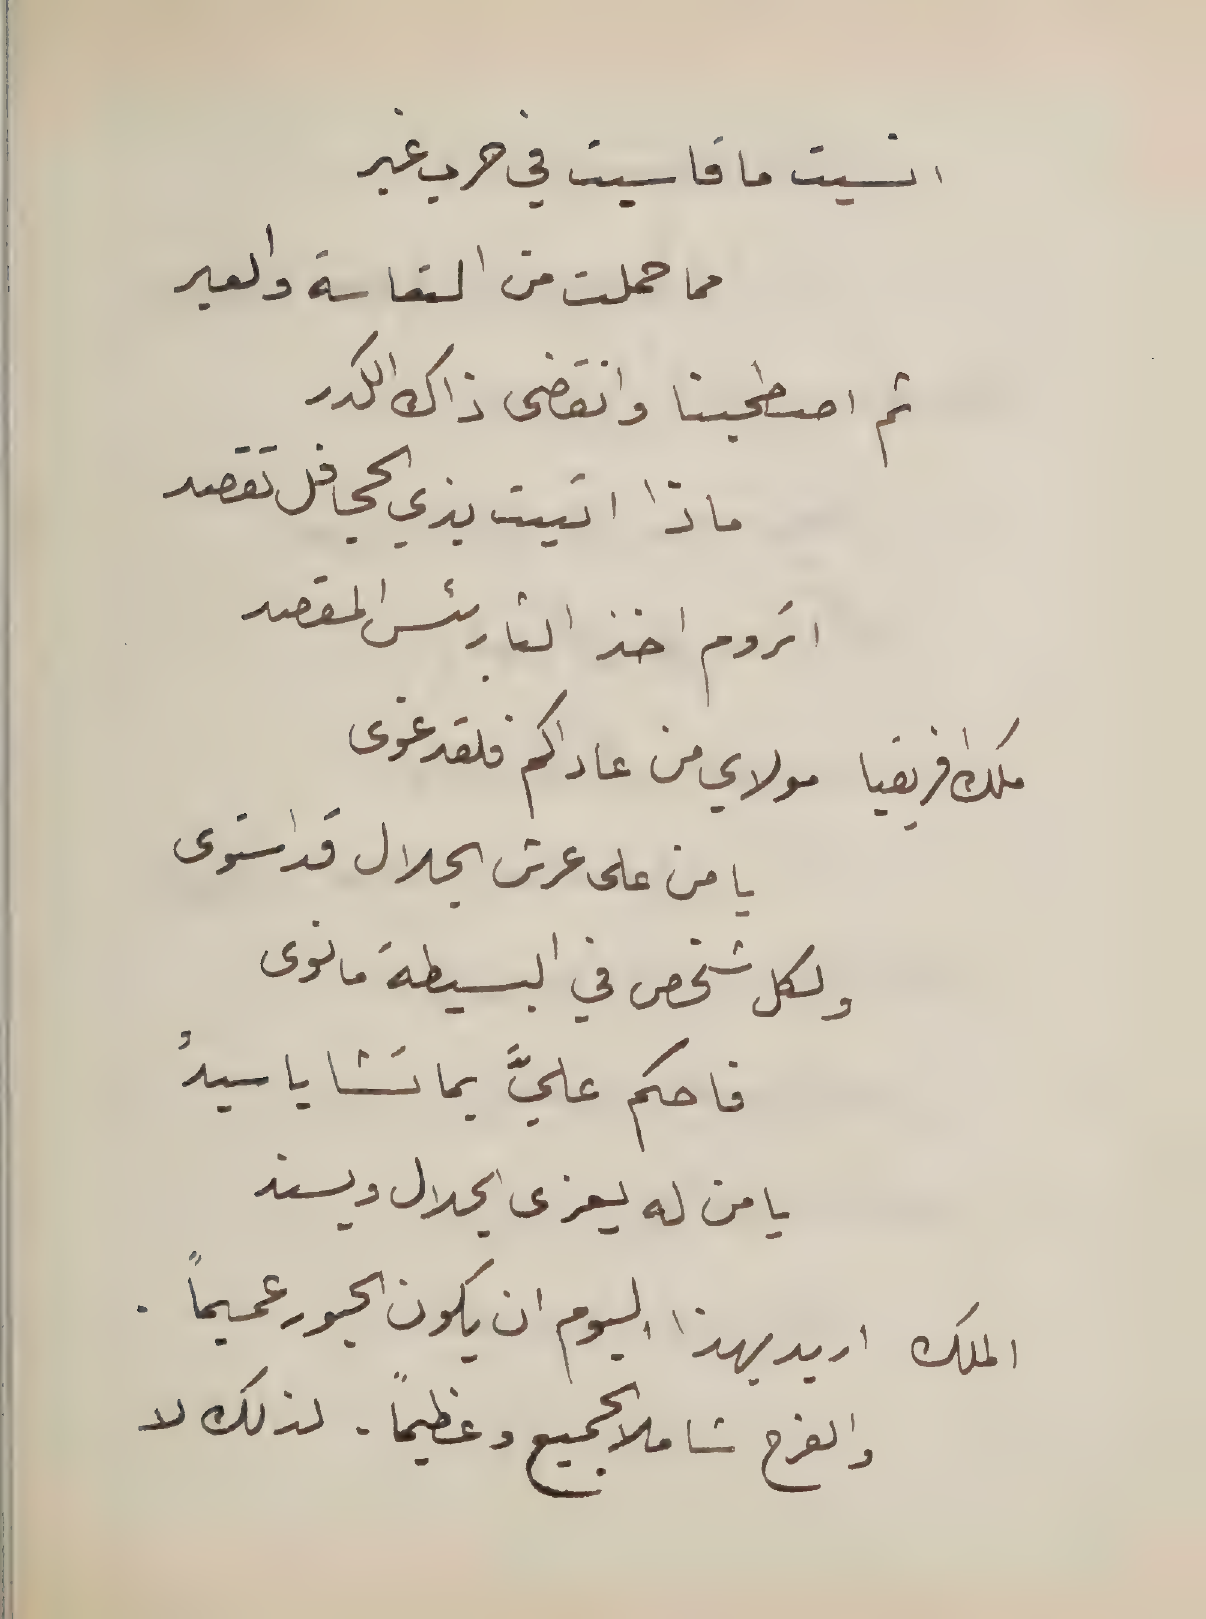 انسيت ما قاسيت في حرب غبر
مما حملت من التعاسة والعبر
ثم اصطحبنا وانقضى ذاك الكدر
ماذا اتيت بذي الجحافل تقصد
اتروم اخذ الثار بئس المقصد
ملك افريقيا مولاي من عاداكم فلقد غوى
يا من على عرش الجلال قد استوى
ولكل شخص في البسيطة ما نوى
فاحكم عليَّ بما تشا يا سيدُ
يا من له يعزى الجلال ويسند
الملك اريد بهذا اليوم ان يكون الحبور عميماً .
والفرح شاملا الجميع وعظيماً . لذلك لا